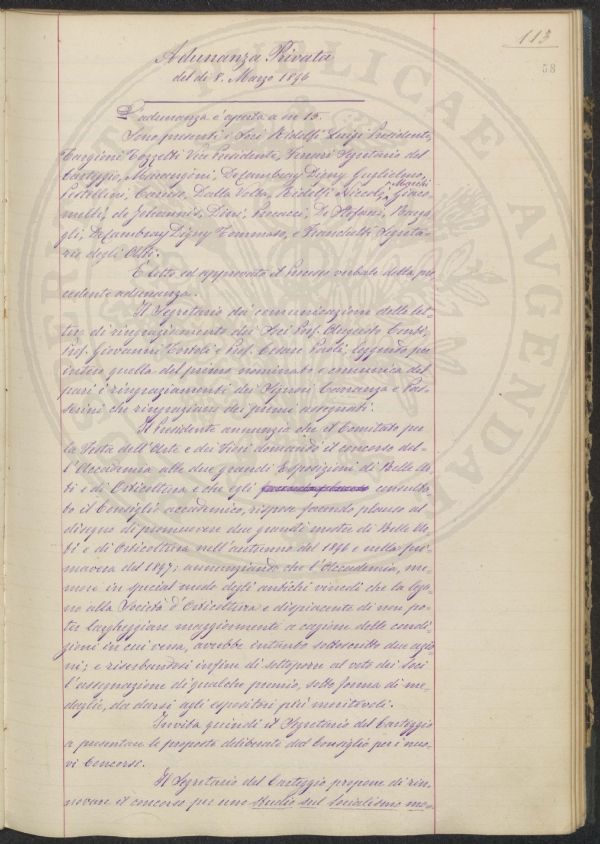 113
58
Adunanza Privata
del dì 8. Marzo 1896
L'adunanza è aperta a ore 13.
Sono presenti i Soci Ridolfi Luigi Presidente,
Targioni Tozzetti Vice Presidente, Ferrari Segretario del
Carteggio, Marangini, De Cambray Digny Guglielmo,
Pestellini, Caruso, Dalla Volta, Ridolfi Niccolò, March. Giaco
melli, de Johannis, Dini, Vinacci, De Stefani, Barga
gli, De Cambray Digny Tommaso, e Franchetti Segreta-
rio degli Atti.
È letto ed approvato il Processo verbale della pre
cedente adunanza.
Il Segretario dà comunicazione delle let-
tere di ringraziamento dei Soci Prof. Augusto Conti,
Prof. Giovanni Tortoli e Prof. Cesare Paoli; leggendo per
intero quella del primo nominato e comunica del
pari i ringraziamenti dei Signori Carranza e Pas-
serini che ringraziano dei premi assegnati.
Il Presidente annunzia che il Comitato per
la Festa dell'Arte e dei Fiori domandò il concorso del-
l'Accademia alle due grandi Esposizioni di Belle Ar-
ti e di Orticoltura e che egli consulta
to il Consiglio accademico, rispose facendo plauso al
disegno di promuovere due grandi mostre di Belle Ar-
ti e di Orticoltura nell'autunno del 1896 e nella pri-
mavera del 1897; annunziando che l'Accademia, me-
more in special modo degli antichi vincoli che la lega-
no alla Società d'Orticoltura e dispiacente di non po-
ter largheggiare maggiormente a cagione delle condi-
zioni in cui versa, avrebbe intanto sottoscritto due azio
ni; e riserbandosi infine di sottoporre al voto dei Soci
l'assegnazione di qualche premio, sotto forma di me-
daglie, da darsi agli espositori più meritevoli.
Invita quindi il Segretario del Carteggio
a presentare le proposte deliberate dal Consiglio per i nuo-
vi Concorsi.
Il Segretario del Carteggio propone di rin-
novare il concorso per uno Studio sul Socialismo me-